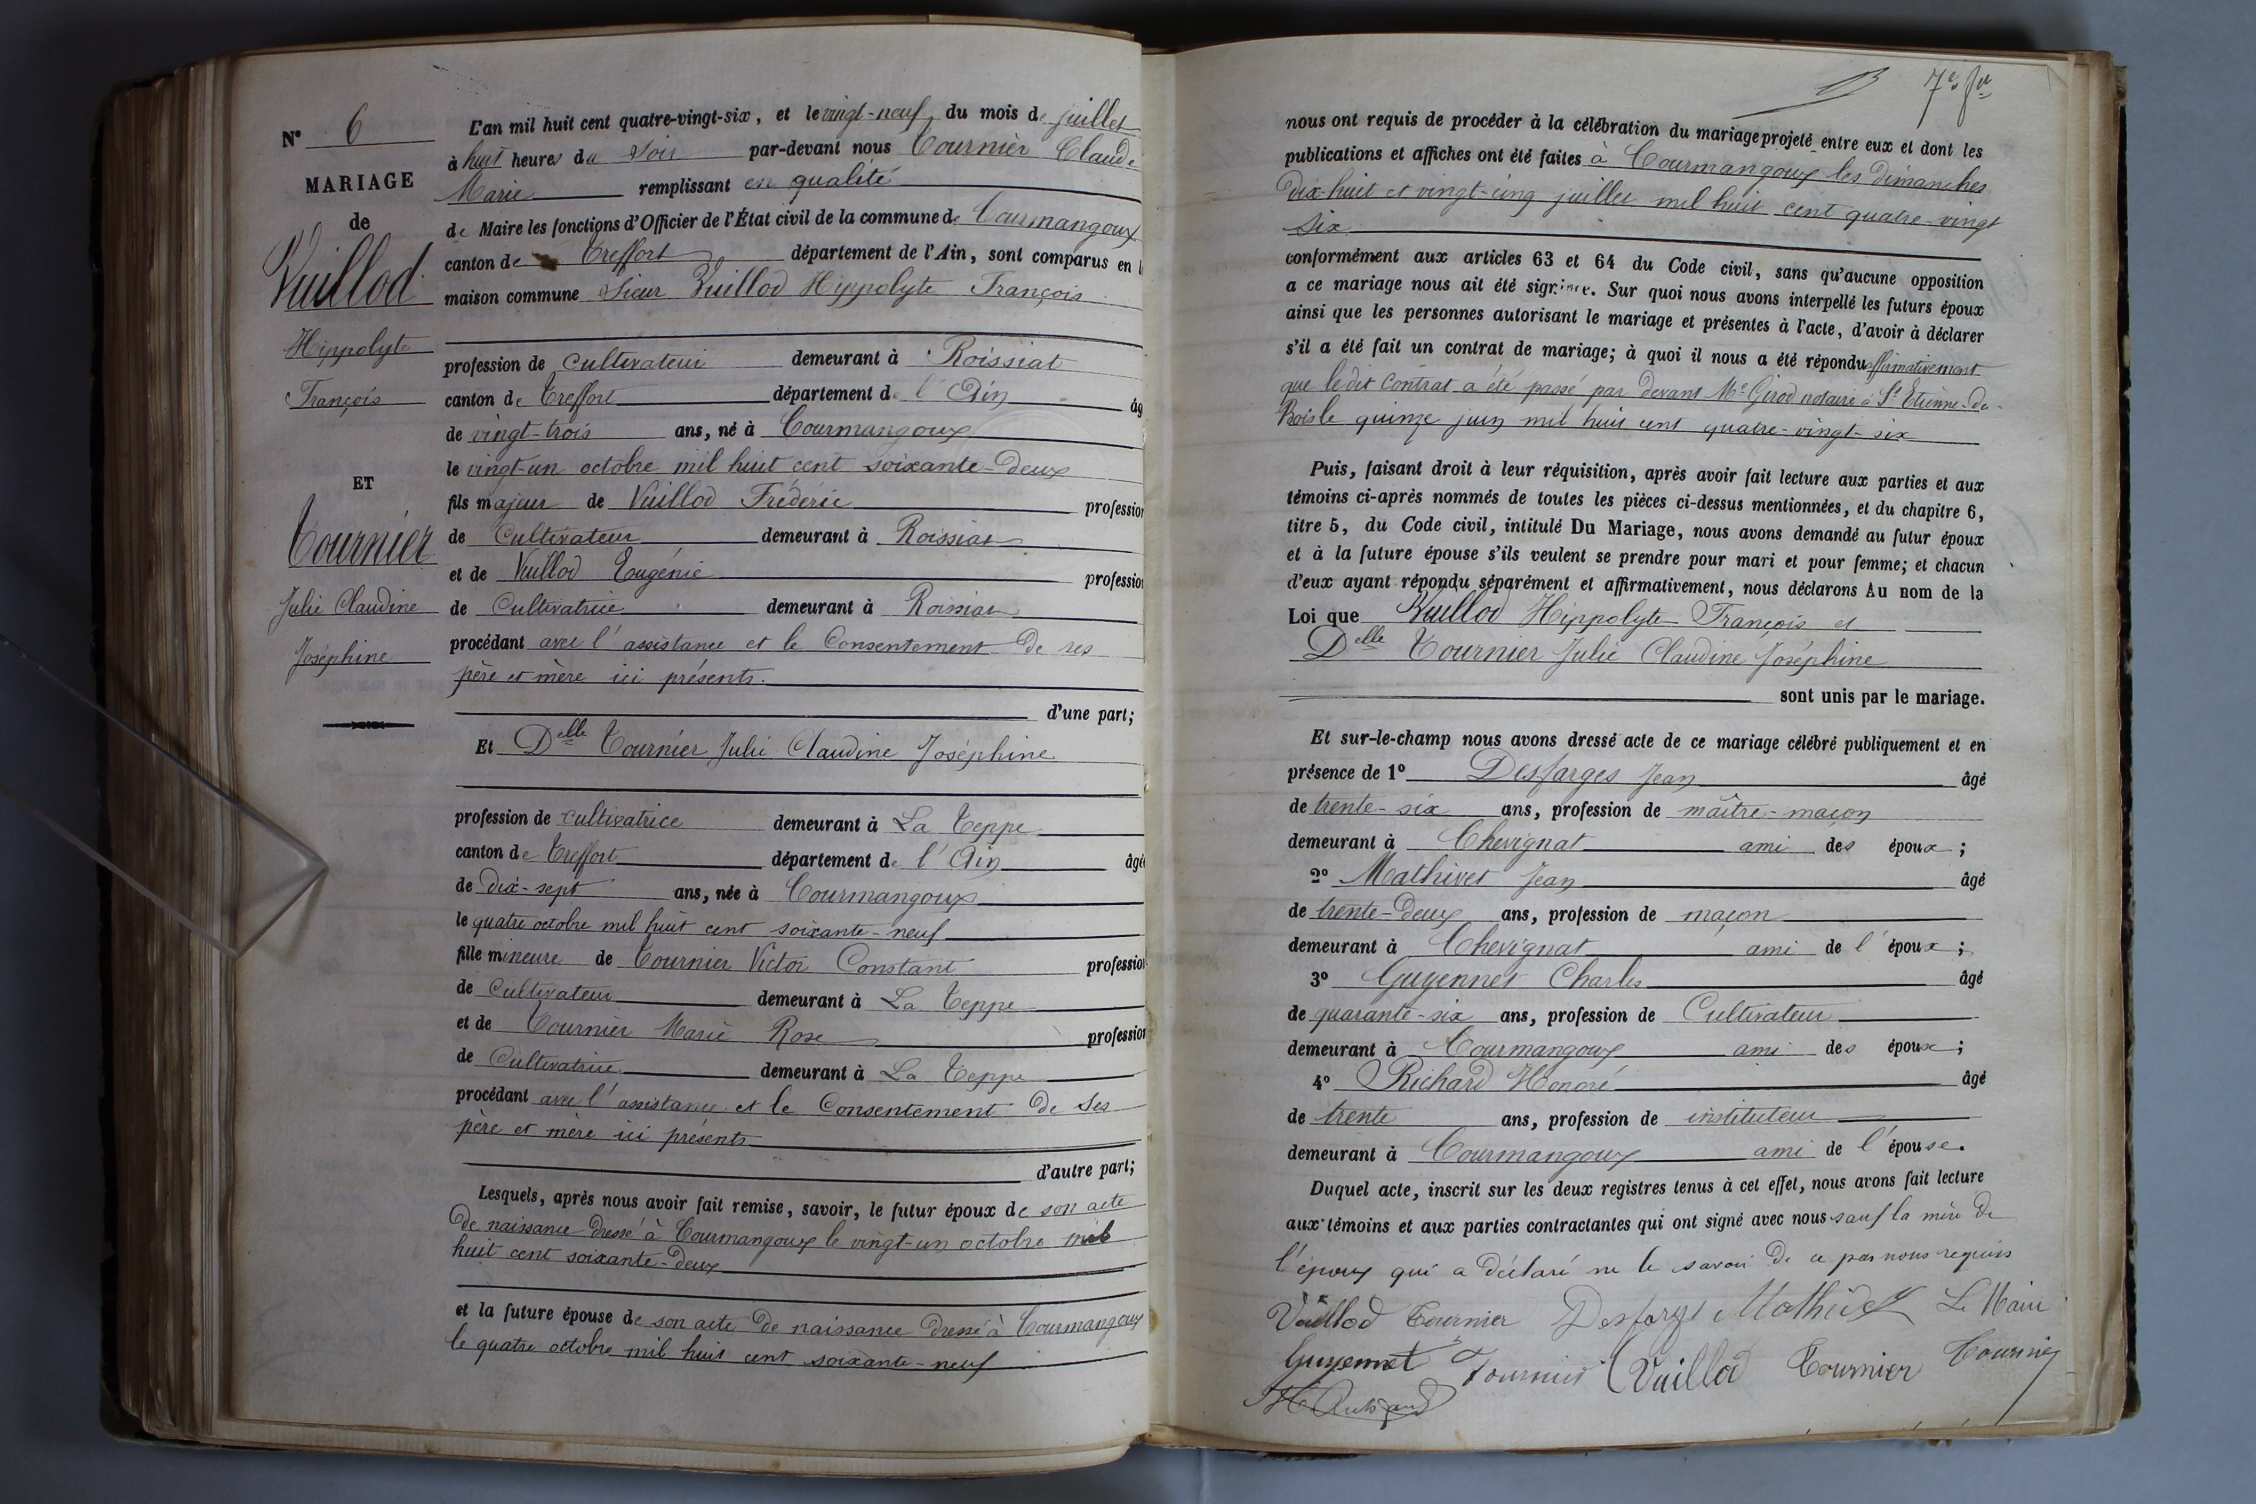 N° 6
MARIAGE
de
Vuillod
Hippolyte
François
ET
Tournier
Julie Claudine
Joséphine
L'an mil huit cent quatre-vingt-six, et le vingt-neuf du mois de juillet
à huit heures du soir par-devant nous Tournier Claude
Marie remplissant en qualité
de Maire les fonctions d'Officier de l'État civil de la commune de Courmangoux
canton de Treffort département de l'Ain, sont comparus en la
maison commune Sieur Vuillod Hippolyte François
profession de cultivateur demeurant à Roissiat
canton de Treffort département de l'Ain âg
de vingt-trois ans, né à Courmangoux
le vingt-un octobre mil huit cent soixante-deux
fils majeur de Vuillod Frédéric profession
de Cultivateur demeurant à Roissiat
et de Vuillod Eugénie profession
de Cultivatrice demeurant à Roissiat
procédant avec l'assistance et le Consentement de ses
père et mère ici présents.
d'une part;
Et Delle Tournier Julie Claudine Joséphine
profession de cultivatrice demeurant à La Teppe
canton de Treffort département de l'Ain âgée
de dix-sept ans, née à Courmangoux
le quatre octobre mil huit cent soixante-neuf
fille mineure de Tournier Victor Constant profession
de Cultivateur demeurant à La Teppe
et de Tournier Marie Rose profession
de Cultivatrice demeurant à La Teppe
procédant avec l'assistance et le Consentement de ses
père et mère ici présents
d'autre part;
Lesquels, après nous avoir fait remise, savoir, le futur époux de son acte
de naissance dressé à Courmangoux le vingt-un octobre mil
huit cent soixante-deux
et la future épouse de son acte de naissance dressé à Courmangoux
le quatre octobre mil huit cent soixante-neuf
7e
nous ont requis de procéder à la célébration du mariage projeté entre eux et dont les
publications et affiches ont été faites à Courmangoux les dimanches
dix-huit et vingt-cinq juillet mil huit cent quatre-vingt
six
conformément aux articles 63 et 64 du Code civil, sans qu'aucune opposition
a ce mariage nous ait été signifiée. Sur quoi nous avons interpellé les futurs époux
ainsi que les personnes autorisant le mariage et présentes à l'acte, d'avoir à déclarer
s'il a été fait un contrat de mariage; à quoi il nous a été répondu affirmativement
que ledit Contrat a été passé par devant Me Girod notaire à St Etienne-du-
Bois le quinze juin mil huit cent quatre-vingt-six
Puis, faisant droit à leur réquisition, après avoir fait lecture aux parties et aux
témoins ci-après nommés de toutes les pièces ci-dessus mentionnées, et du chapitre 6,
titre 5, du Code civil, intitulé Du Mariage, nous avons demandé au futur époux
et à la future épouse s'ils veulent se prendre pour mari et pour femme; et chacun
d'eux ayant répondu séparément et affirmativement, nous déclarons Au nom de la
Loi que Vuillod Hippolyte François et
Delle Tournier Julie Claudine Joséphine
sont unis par le mariage.
Et sur-le-champ nous avons dressé acte de ce mariage célébré publiquement et en
présence de 1° Desfarges Jean âgé
de trente-six ans, profession de maître-maçon
demeurant à Chevignat ami des époux;
2° Mathivet Jean âgé
de trente-deux ans, profession de maçon
demeurant à Chevignat ami de l'époux;
3° Guyennet Charles âgé
de quarante-six ans, profession de Cultivateur
demeurant à Courmangoux ami des époux;
4° Richard Honoré âgé
de trente ans, profession de instituteur
demeurant à Courmangoux ami de l'épouse.
Duquel acte, inscrit sur les deux registres tenus à cet effet, nous avons fait lecture
aux témoins et aux parties contractantes qui ont signé avec nous sauf la mère de
l'époux qui a déclaré ne le savoir de ce par nous requis
Vuillod Tournier Desfarges Mathivet Le Maire
Guyennet Tournier Vuillod Tournier Tournier